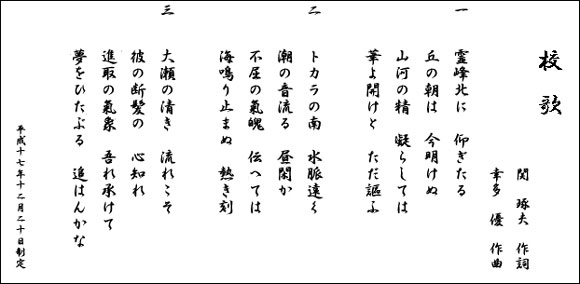 校歌
関 琢夫 作詞
幸多 優 作曲
一
霊峰北に 仰ぎたる
丘の朝は 今明けぬ
山河の精 凝らしては
華よ開けと ただ謳ふ
二
トカラの南 水脈遠く
潮の音流る 昼閑か
不屈の氣魄 伝へては
海鳴り止まぬ 熱き刻
三
大瀬の清き 流れこそ
彼の断髪の 心知れ
進取の氣象 吾れ承けて
夢をひたぶる 追はんかな
平成十七年十二月二十日制定